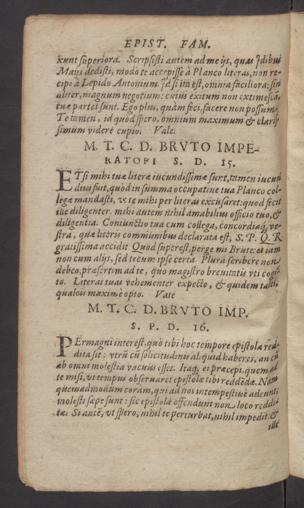 EPIST. FAM.
xunt superiora. Scripsisti autem ad me ijs, quas
Maiis dedisti, modo te accepisse à Planco literas, non re-
cipi à Lepido Antonium. si ita est, omnia faciliora: sin
aliter, magnum negotium: cuius exitum non extimesco,
tuæ partes sunt. Ego plus, quàm feci, facere non possum.
Te tamen, id quod spero, omnium maximum & claris-
simum videre cupio. Vale.
M. T. C. D. BRVTO IMPE-
RATORI S. D. 15.
ETsi mihi tuæ literæ iucundissimæ sunt, tamen iucun
dius fuit, quod in summa occupatione tua Planco col-
legæ mandasti, vt te mihi per literas excusaret: quod fecit
ille diligenter. mihi autem nihil amabilius officio tuo, &
diligentia. Coniunctio tua cum collega, concordiaq; ve-
stra, quæ literis communibus declarata est, S. P. Q. R.
gratissima accidit. Quod superest, perge mi Brute: et iam
non cum alijs, sed tecum ipse certa. Plura scribere non
debeo, præsertim ad te, quo magistro breuitatis vti cogi-
to. Literas tuas vehementer expecto, & quidem tales,
qualeis maximè opto. Vale
M. T. C. D. BRVTO IMP.
S. P. D. 16.
PErmagni interest, quo tibi hæc tempore epistola red-
dita sit: vtrũ cũ solicitudinis aliquid haberes, an cũ
ab omni molestia vacuus esses. Itaq; ei præcepi, quem ad
te misi, vt tempus obseruaret epistolæ tibi reddẽdæ. Nam
quemadmodum coram, qui ad nos intempestiuè adeunt,
molesti sæpe sunt: sic epistolæ offendunt non loco reddi-
tæ. Si autẽ, vt spero, nihil te perturbat, nihil impedit, &
ille